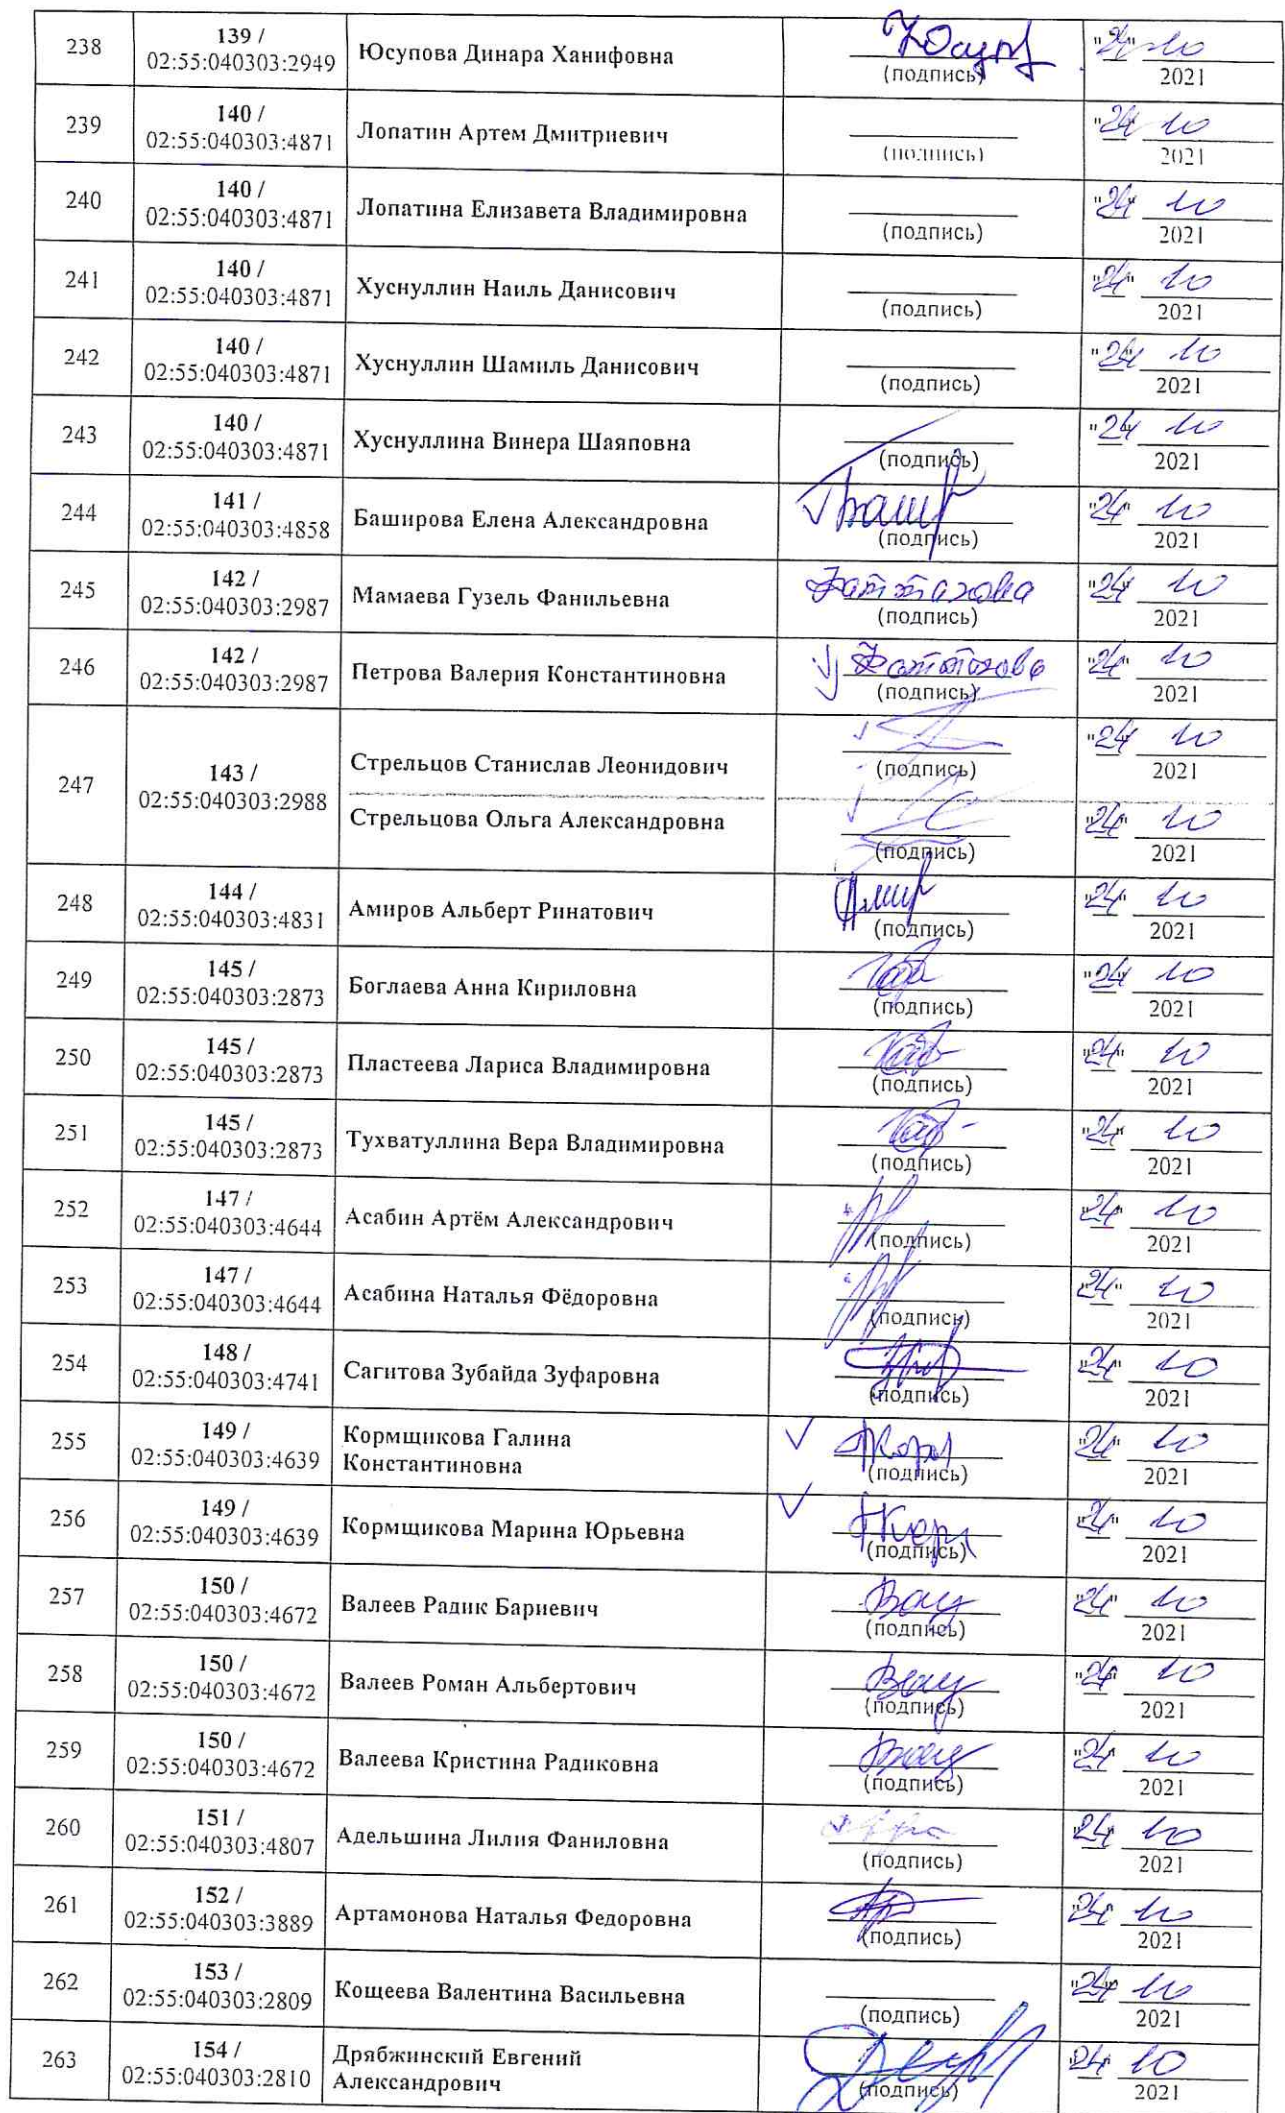 238 139 / 02:55:040303:2949 Юсупова Динара Ханифовна (подпись) "24" 10 2021
239 140 / 02:55:040303:4871 Лопатин Артем Дмитриевич (подпись) "24 10 2021
240 140 / 02:55:040303:4871 Лопатина Елизавета Владимировна (подпись) "24 10 2021
241 140 / 02:55:040303:4871 Хуснуллин Наиль Данисович (подпись) "24" 10 2021
242 140 / 02:55:040303:4871 Хуснуллин Шамиль Данисович (подпись) "24 10 2021
243 140 / 02:55:040303:4871 Хуснуллина Винера Шаяповна (подпись) "24 10 2021
244 141 / 02:55:040303:4858 Баширова Елена Александровна (подпись) "24" 10 2021
245 142 / 02:55:040303:2987 Мамаева Гузель Фанильевна Фаттахова (подпись) "24" 10 2021
246 142 / 02:55:040303:2987 Петрова Валерия Константиновна Фаттахова (подпись) "24" 10 2021
247 143 / 02:55:040303:2988 Стрельцов Станислав Леонидович (подпись) "24" 10 2021
Стрельцова Ольга Александровна (подпись) "24" 10 2021
248 144 / 02:55:040303:4831 Амиров Альберт Ринатович (подпись) "24" 10 2021
249 145 / 02:55:040303:2873 Боглаева Анна Кириловна (подпись) "24 10 2021
250 145 / 02:55:040303:2873 Пластеева Лариса Владимировна (подпись) "24" 10 2021
251 145 / 02:55:040303:2873 Тухватуллина Вера Владимировна (подпись) "24" 10 2021
252 147 / 02:55:040303:4644 Асабин Артём Александрович (подпись) "24" 10 2021
253 147 / 02:55:040303:4644 Асабина Наталья Фёдоровна (подпись) "24" 10 2021
254 148 / 02:55:040303:4741 Сагитова Зубайда Зуфаровна (подпись) "24" 10 2021
255 149 / 02:55:040303:4639 Кормщикова Галина Константиновна (подпись) "24" 10 2021
256 149 / 02:55:040303:4639 Кормщикова Марина Юрьевна (подпись) "24" 10 2021
257 150 / 02:55:040303:4672 Валеев Радик Бариевич (подпись) "24" 10 2021
258 150 / 02:55:040303:4672 Валеев Роман Альбертович (подпись) "24" 10 2021
259 150 / 02:55:040303:4672 Валеева Кристина Радиковна (подпись) "24" 10 2021
260 151 / 02:55:040303:4807 Адельшина Лилия Фаниловна (подпись) "24" 10 2021
261 152 / 02:55:040303:3889 Артамонова Наталья Федоровна (подпись) "24" 10 2021
262 153 / 02:55:040303:2809 Кощеева Валентина Васильевна (подпись) "24" 10 2021
263 154 / 02:55:040303:2810 Дрябжинский Евгений Александрович (подпись) "24" 10 2021